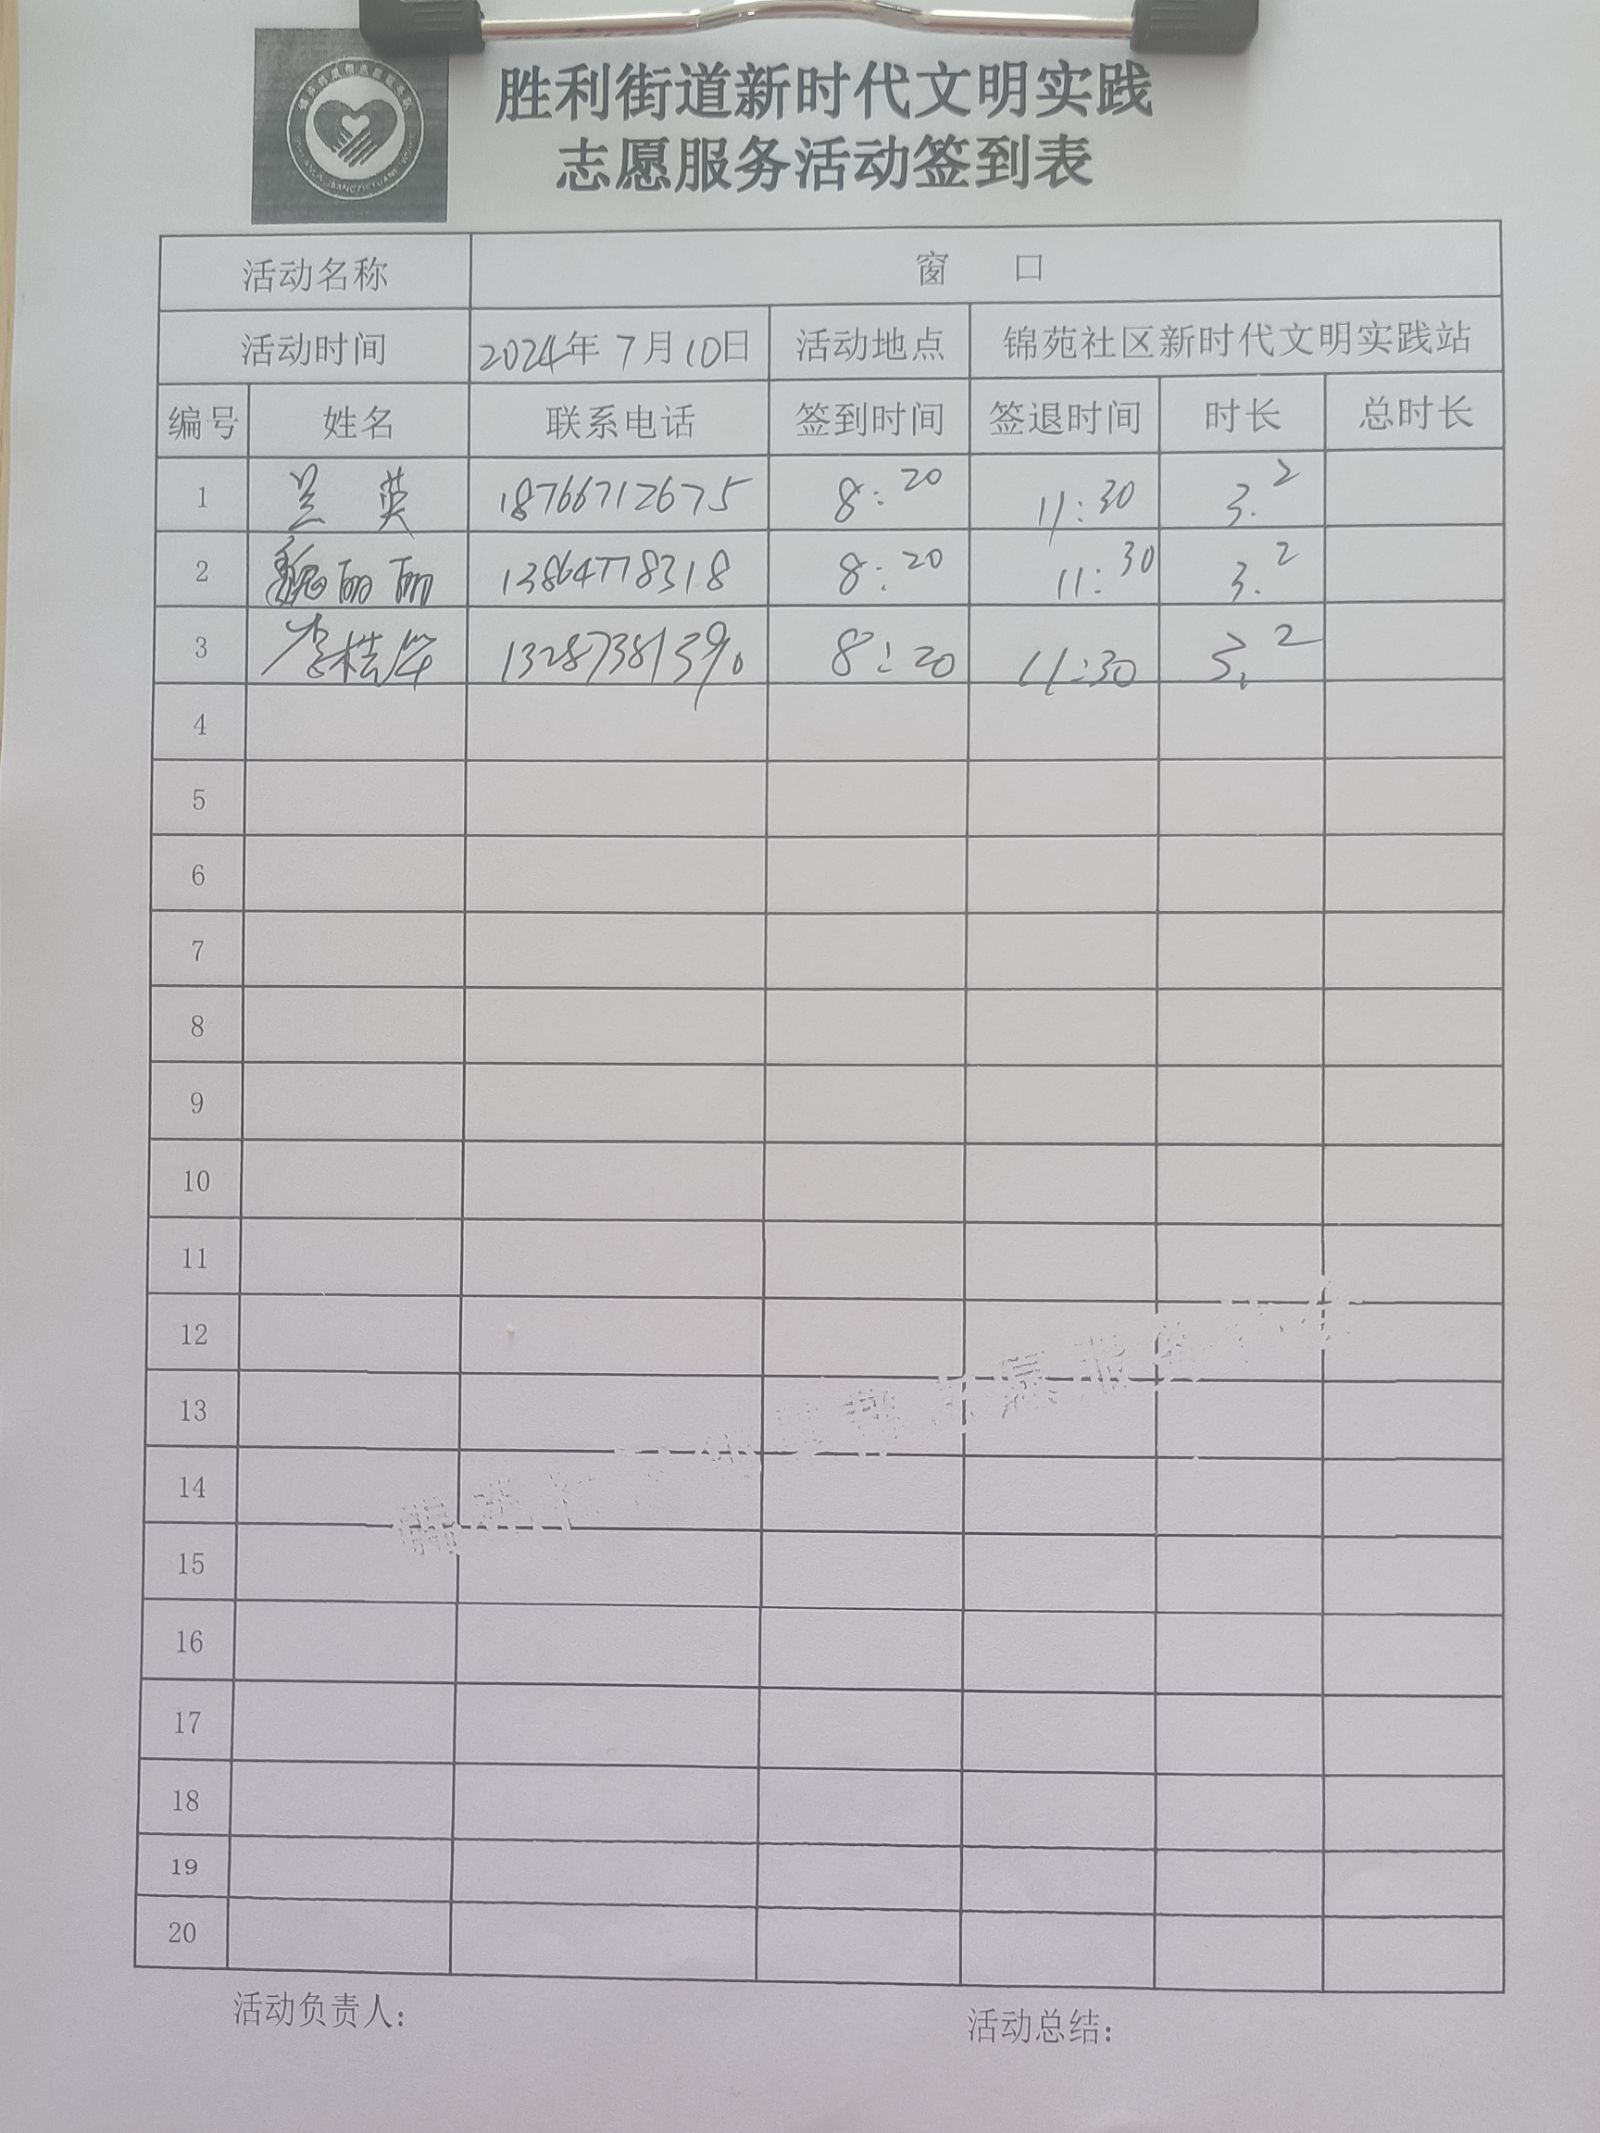 胜利街道新时代文明实践
志愿服务活动签到表
活动名称 窗 口
活动时间 2024年 7月10日 活动地点 锦苑社区新时代文明实践站
编号 姓名 联系电话 签到时间 签退时间 时长 总时长
1 吴 英 18766712675 8:20 11:30 3.2
2 魏丽丽 13864778318 8:20 11:30 3.2
3 13287381390 8:20 11:30 3.2
4
5
6
7
8
9
10
11
12
13
14
15
16
17
18
19
20
活动负责人: 活动总结: